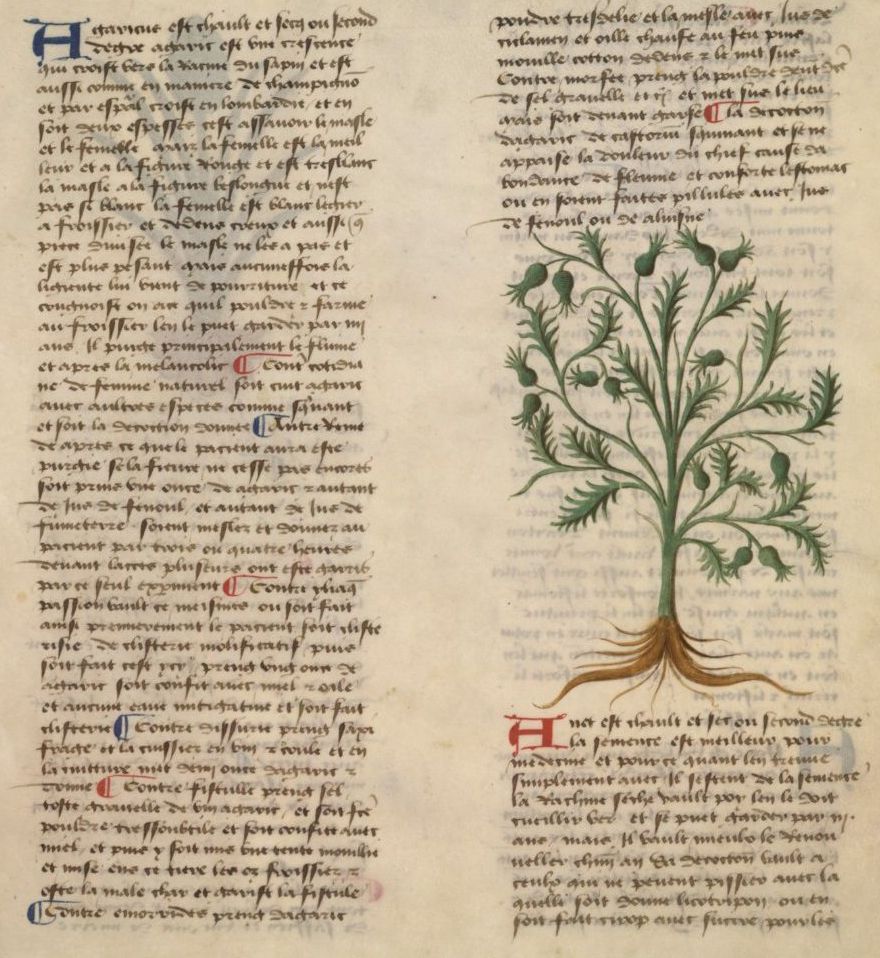 Agaricus est chault et secq ou second
degre agaric est vne crescence
qui croist vers la Racine du sapin et est
aussi comme en maniere de champignō
et par espāl croist en lombardie, et en
soit deux especes cest assavoir le masle
et le femelle maiz la femelle est la meil
leur et a la figure Ronge et est tresblanc
la masle a la figure beslongue et nest
pas si blanc la femelle est blanc legier
a froissier et dedens creux et aussi
piece divisee le masle ne les a pas et
est plus pesant mais aucuneffois la
ligierete lui vient de pourriture et ce
congnoist on ace quil pouldre z farine
au froissier len le puet garder par iiij
ans Il purge principalement le flume
et apres la melancolie ¶ Contʳ cotidia
ne de flemme naturel soit cuit agaric
avec aultres especes comme squant
et soit la decoction donnee ¶ Autre Reme
de apres ce que le pacient aura este
purgie se la fievre ne cesse pas encores
soit prins vne once de agaric z autant
de Jus de fenoul, et autant de Jus de
fumeterre soient meslez et donnez au
pacient par trois ou quatre heures
devant lacces plusieurs ont este garis
par ce seul expiment ¶ Contre yliaq
passion vault ce meismes ou soit fait
ainsi premierement le pacient soit cliste
risie de clisterie molificatif, puis
soit fait cest ycy, preng vng once de
agaric soit confit avec miel z oile
et aucune eaue mitigative et soit fait
clisterie ¶ Contre dissurie preng saxi
frage et la cuissier en vin z coule et en
la cuitture met demi once dagaric z
donne ¶ Contre fistulle preng sel
toste gravelle de vin agaric, et soit fcē
pouldre tressoubtile et soit confite avec
miel, et puis y soit mis vne tente moullie
et mise ens ce tire les os froissier z
oste la male char et garist la fistule
¶ Contre emorroides preng dagaric
pouldre tresdelie et la mesle avec Jus de
ciclamen et oille chaufe au feu puis
moulle cotton dedens z le met sus
Contre morfee preng la pouldre dent dōs
de sel gravelle et et met sus le lieu
mais soit devant garse ¶ la decoction
dagaric de castoriu squinant et sene
appaise la douleur du chief cause da
bondance de fleume et conforte lestomac
ou en soient faites pillules avec Jus
de fenoul ou de aluisne
Anet est chault et sec ou second degre
la semence est meilleur pour
medecine et pour ce quant len treuve
simplement avec Il sestent de la semence
la Rachine seche vault por len le doit
cueillir ver et se puet garder par iij
ans, mais Il vault mieulx le Renou
veller chūn an Sa decoction vault a
ceulx qui ne peuent pissier avec la
quelle soit donne licotripon ou en
soit fait cirop avec succre pour les